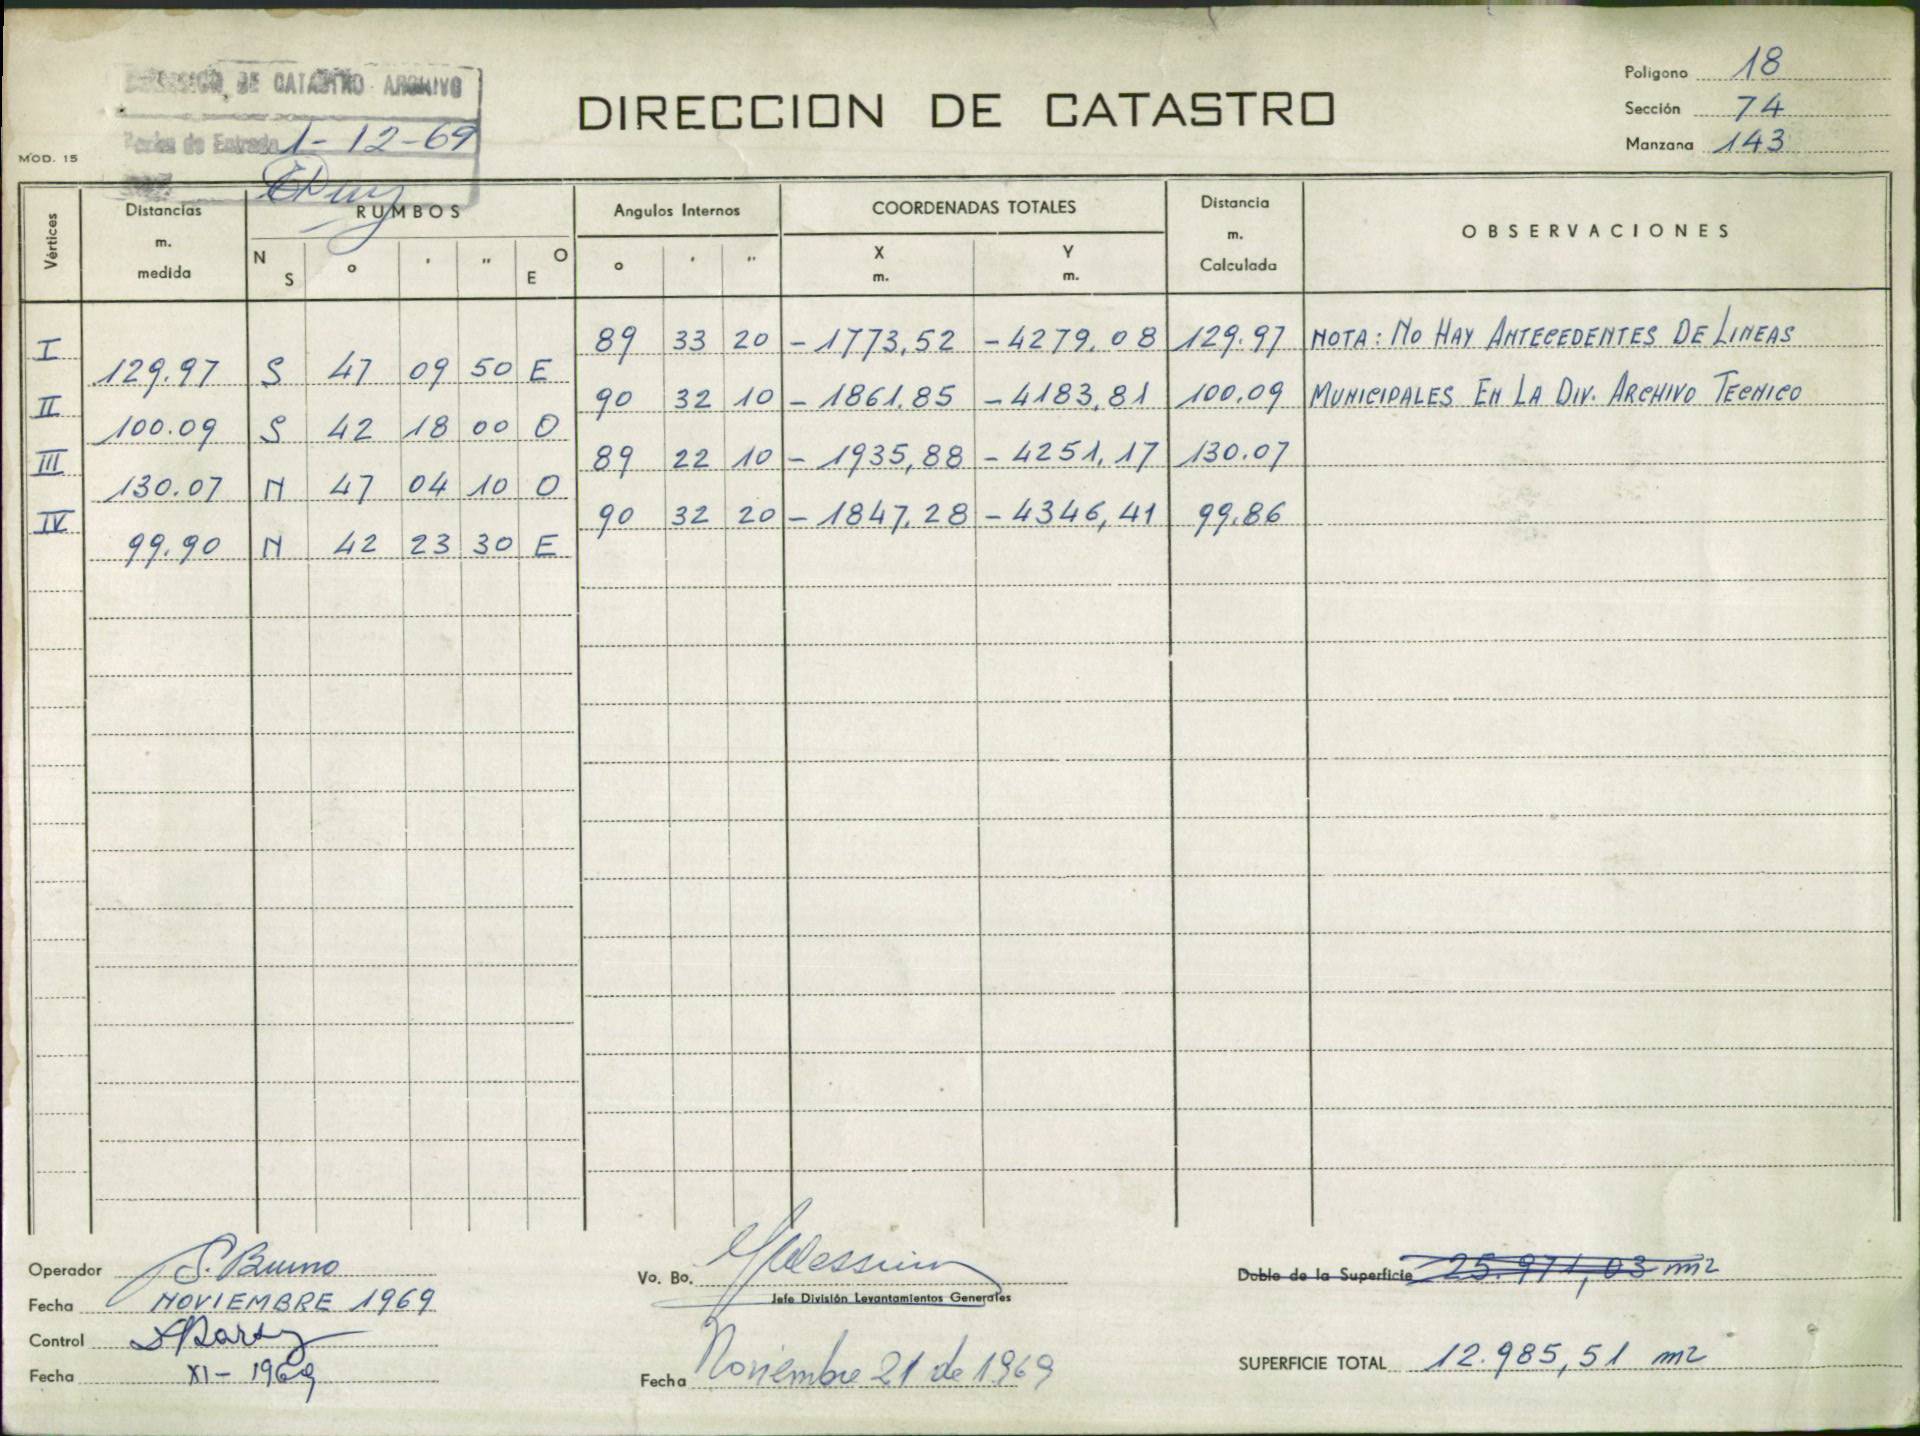 DE CATASTRO ARCHIVO
Fecha de Entrada 1-12-69
DIRECCION DE CATASTRO
Poligono 18
Sección 74
Manzana 143
MOD. 15
Vértices
Distancias m. medida
RUMBOS
N S ° ' " O E
Angulos Internos
° ' "
COORDENADAS TOTALES
X m. Y m.
Distancia m. Calculada
OBSERVACIONES
I 89 33 20 -1773,52 -4279.08 129.97 NOTA: NO HAY ANTECEDENTES DE LINEAS
129.97 S 47 09 50 E
II 90 32 10 -1861.85 -4183,81 100.09 MUNICIPALES EN LA DIV. ARCHIVO TECNICO
100.09 S 42 18 00 O
III 89 22 10 -1935,88 -4251,17 130.07
130.07 N 47 04 10 O
IV 90 32 20 -1847,28 -4346,41 99.86
99.90 N 42 23 30 E
Operador S. Bruno
Fecha NOVIEMBRE 1969
Control
Fecha XI-1969
Vo. Bo.
Jefe División Levantamientos Generales
Fecha Noviembre 21 de 1969
Doble de la Superficie 25.971,03 m2
SUPERFICIE TOTAL 12.985,51 m2